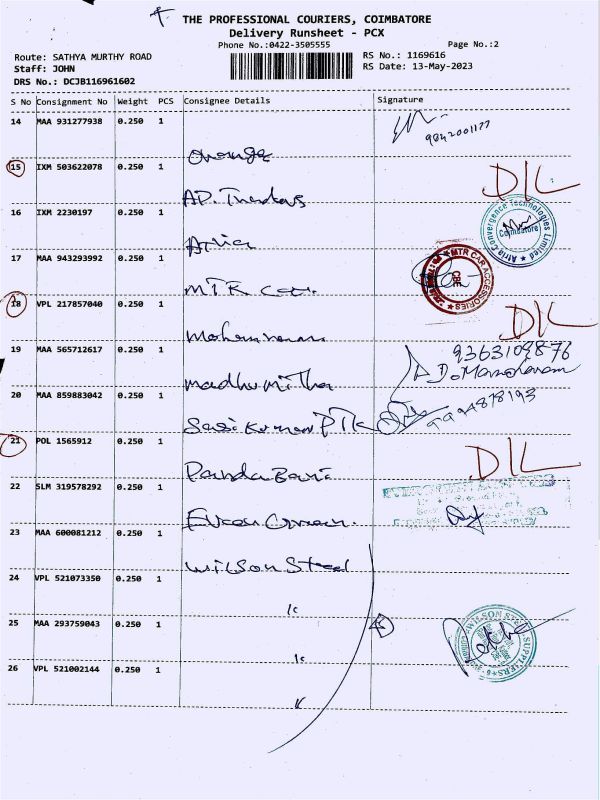 THE PROFESSIONAL COURIERS, COIMBATORE
Delivery Runsheet - PCX
Phone No.:0422-3505555
Page No.:2
Route: SATHYA MURTHY ROAD
RS No.: 1169616
Staff: JOHN
RS Date: 13-May-2023
DRS No.: DCJB116961602
S No Consignment No Weight PCS Consignee Details Signature
14 MAA 931277938 0.250 1
Orange
15 IXM 503622078 0.250 1
AP. Traders
DIL
16 IXM 2230197 0.250 1
Atria
Atria Convergence Technologies Limited
Coimbatore
17 MAA 943293992 0.250 1
MTR Car.
MTR CAR ACCESSORIES
CBE
18 VPL 217857040 0.250 1
DIL
19 MAA 565712617 0.250 1
Madhumitha
D. Manoharam
20 MAA 859883042 0.250 1
Sasikumar PTK
9994878193
21 POL 1565912 0.250 1
DIL
22 SLM 319578292 0.250 1
23 MAA 600081212 0.250 1
Wilson Steel
24 VPL 521073350 0.250 1
25 MAA 293759043 0.250 1
WILSON STEEL SUPPLIERS
26 VPL 521002144 0.250 1